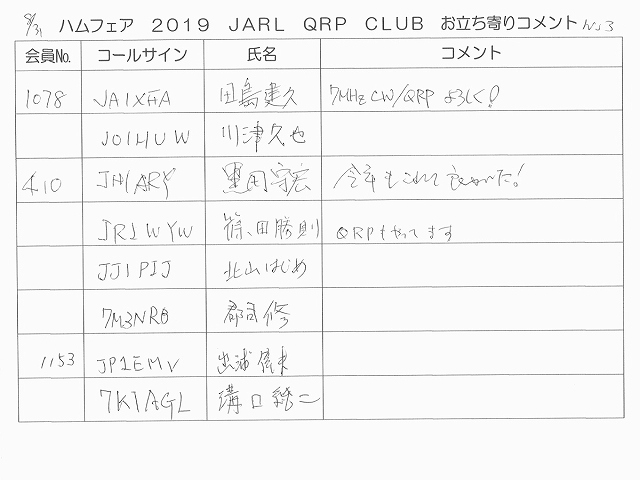 8/31 ハムフェア 2019 JARL QRP CLUB お立ち寄りコメント No3
会員No. コールサイン 氏名 コメント
1078 JA1XFA 田島建久 7MHz CW/QRP よろしく!
JO1HUW 川津久也
410 JH1ARY 黒田守宏 今年もこれて良かった!
JR1WYW 篠田勝則 QRPもやってます
JJ1PIJ 北山はじめ
7M3NRO 郡司修
1153 JP1EMV 出浦
7K1AGL 溝口